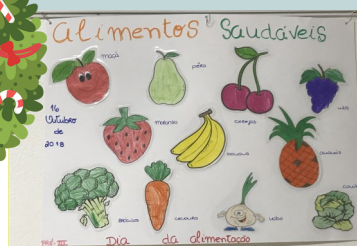 Alimentos Saudáveis
maçã
pêra
cerejas
uva
16
Outubro
de
2018
morango
banana
ananás
brócolos
cenoura
Dia da alimentação